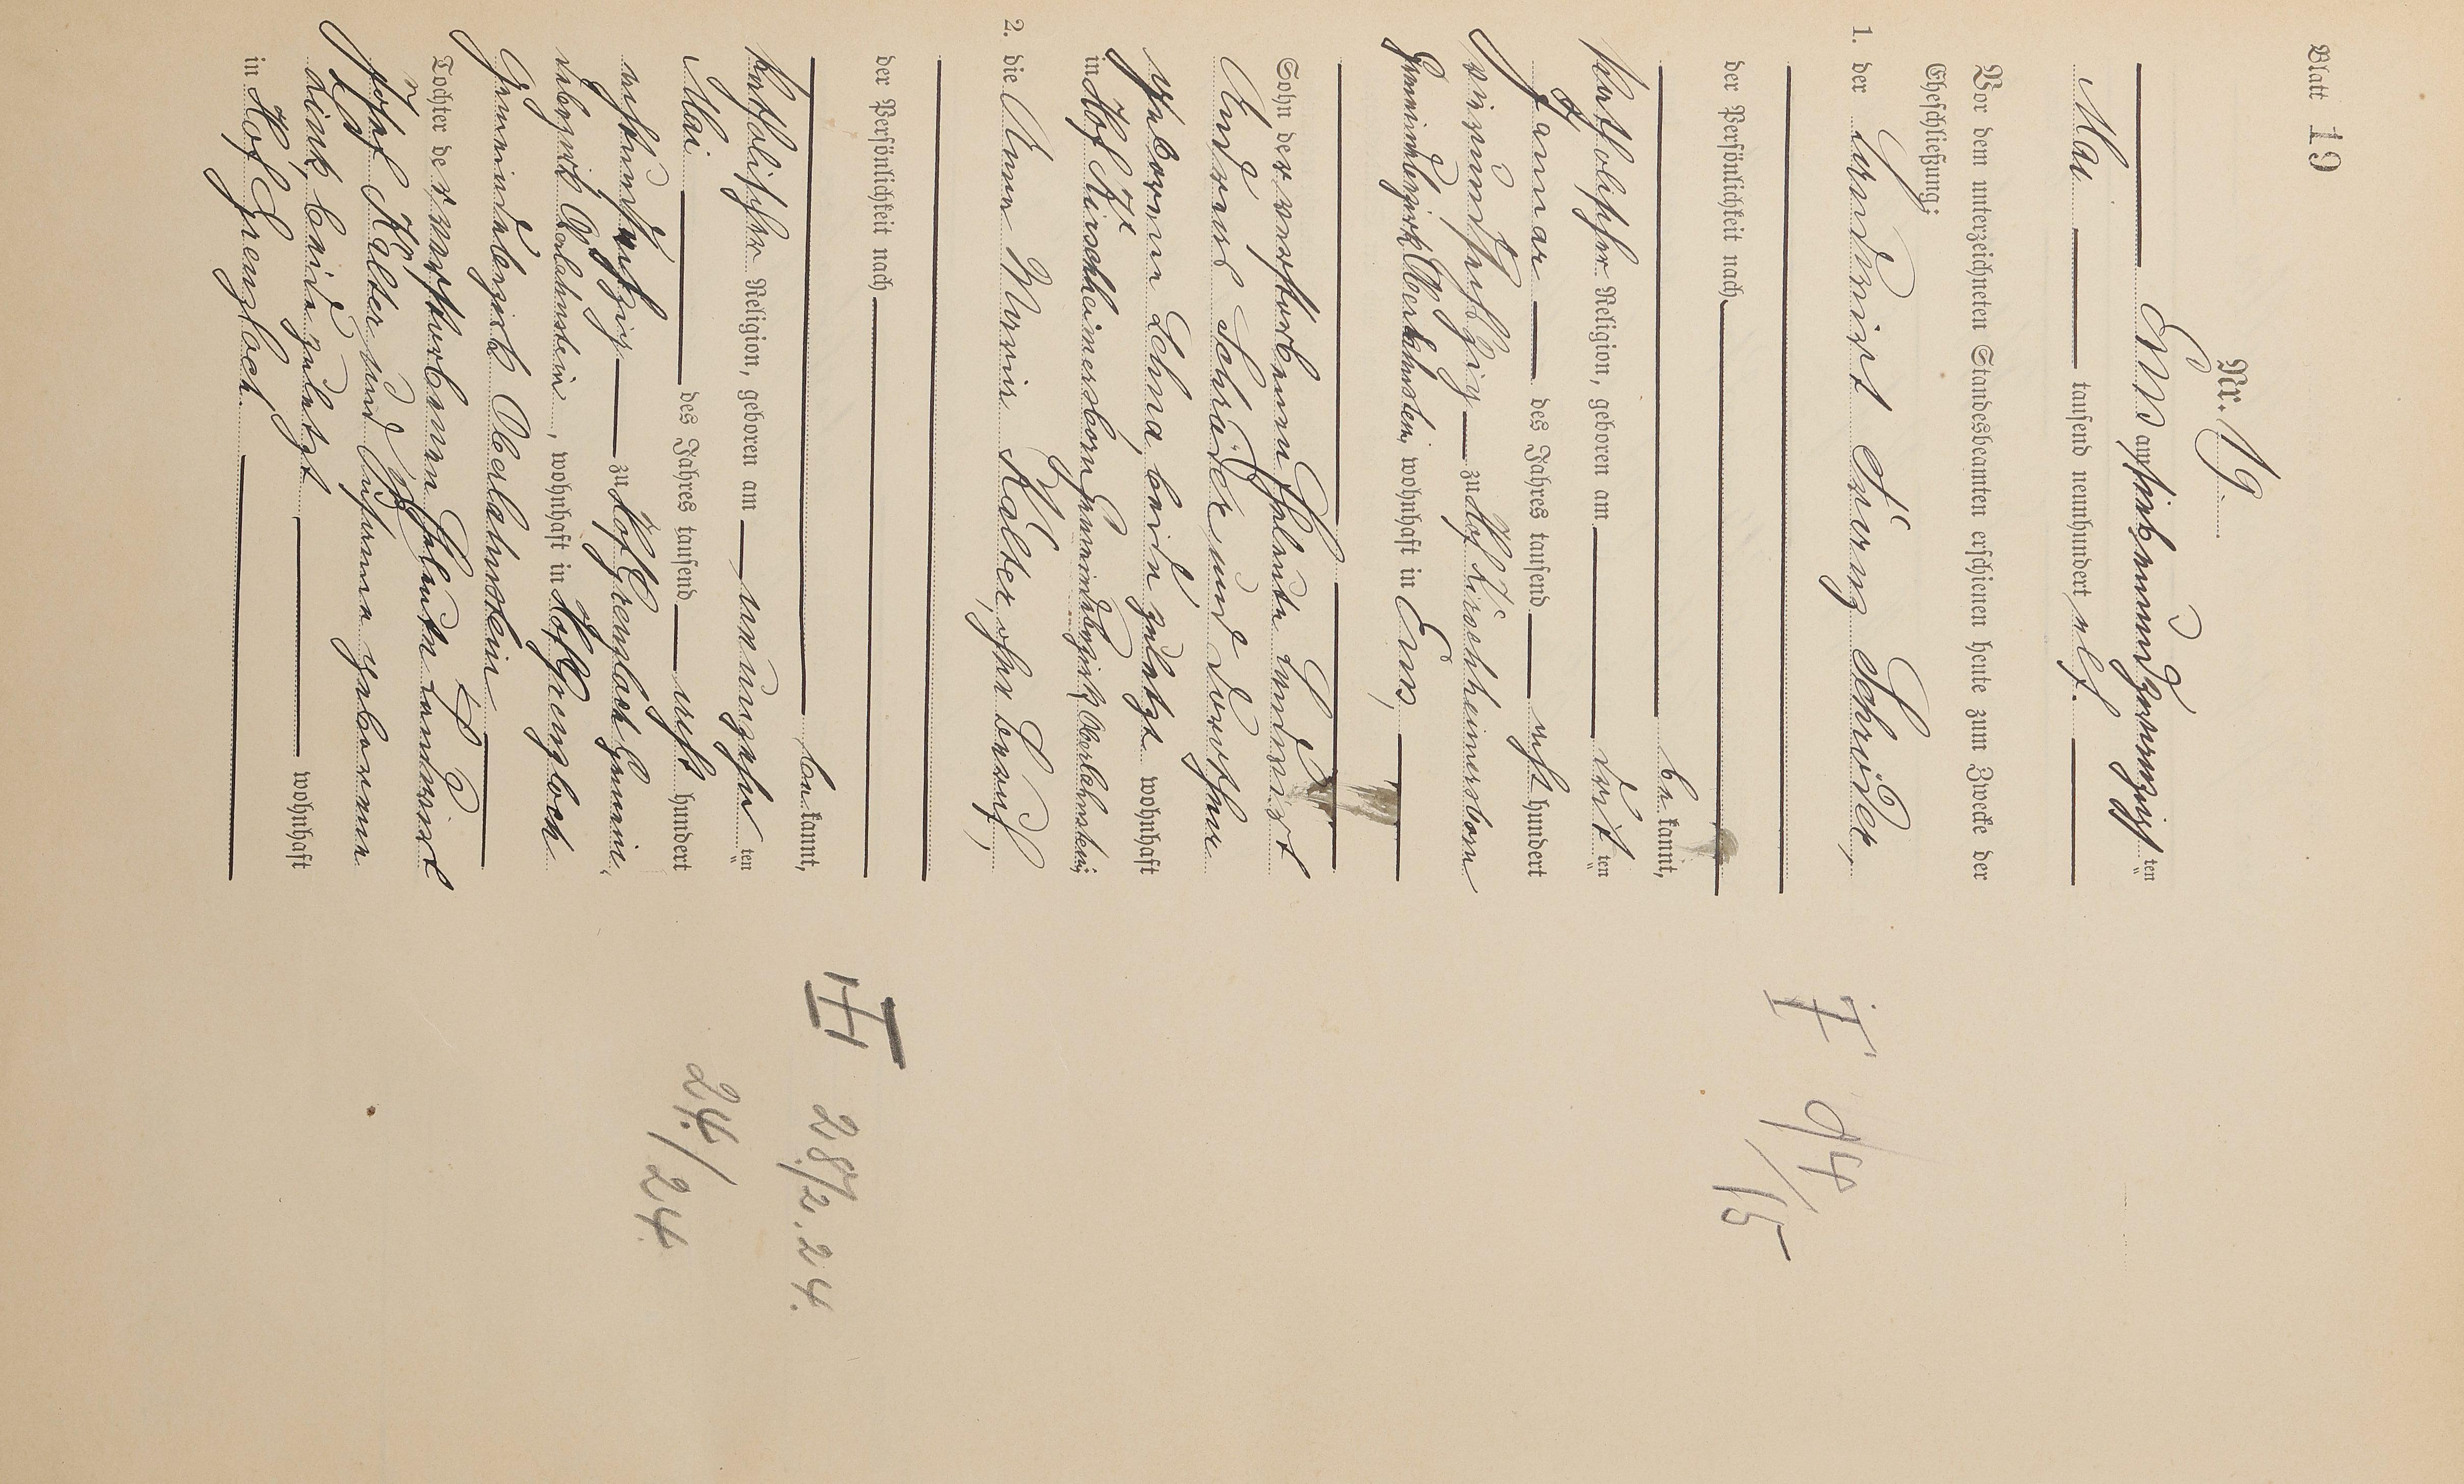 Blatt 19
Nr. 19
Ems am siebenundzwanzigsten
Mai tausend neunhundert elf.
Vor dem unterzeichneten Standesbeamten erschienen heute zum Zwecke der
Eheschließung:
1. der Landwirt Franz Schröder,
der Persönlichkeit nach
be kannt,
katholischer Religion, geboren am dritten
Januar des Jahres tausend acht hundert
zu Hof Kirschheimersborn
Gemeindebezirk Oberlahnstein, wohnhaft in Ems,
Sohn der verstorbenen Eheleute Landwirt
Andreas Schröder und Dorothea
geborene Lehna, beide zuletzt wohnhaft
in Hof Kirschheimersborn Gemeindebezirk Oberlahnstein;
2. die Anna Maria Kälter, ohne Beruf,
der Persönlichkeit nach
be kannt,
katholischer Religion, geboren am neunzehnten
Mai des Jahres tausend acht hundert
achtundsechzig zu Hof Grenzloch Gemein-
debezirk Oberlahnstein, wohnhaft in Hof Grenzloch
Gemeindebezirk Oberlahnstein
Tochter der verstorbenen Eheleute Landwirt
Josef Kälter und Susanna geborenen
beide zuletzt wohnhaft
in Hof Grenzloch.
I 9/4/15
III 28/2.24.
24./24.